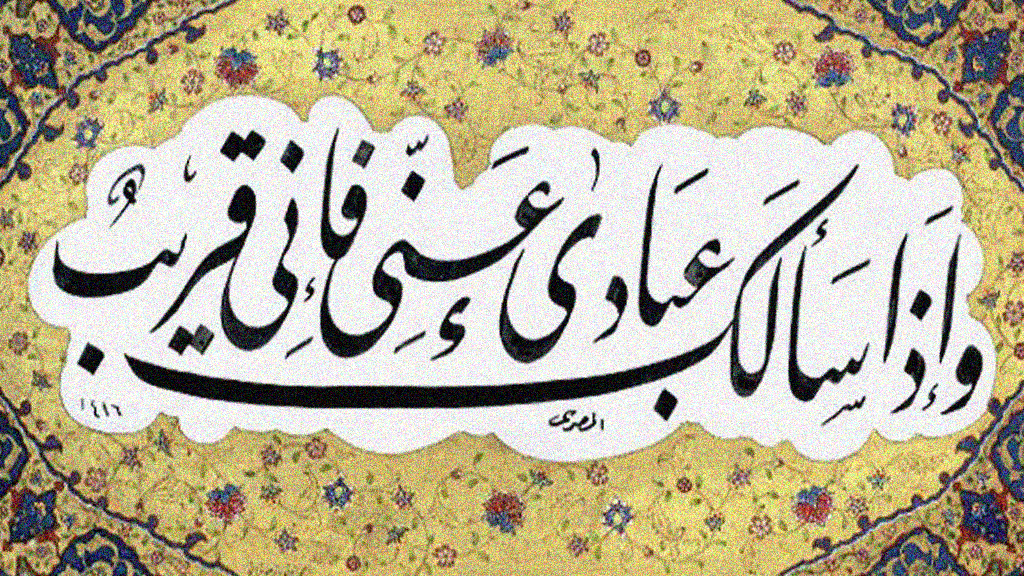 وإذا سألك عبادى عنّى فإنى قريبٌ
المصرى
١٤١٦